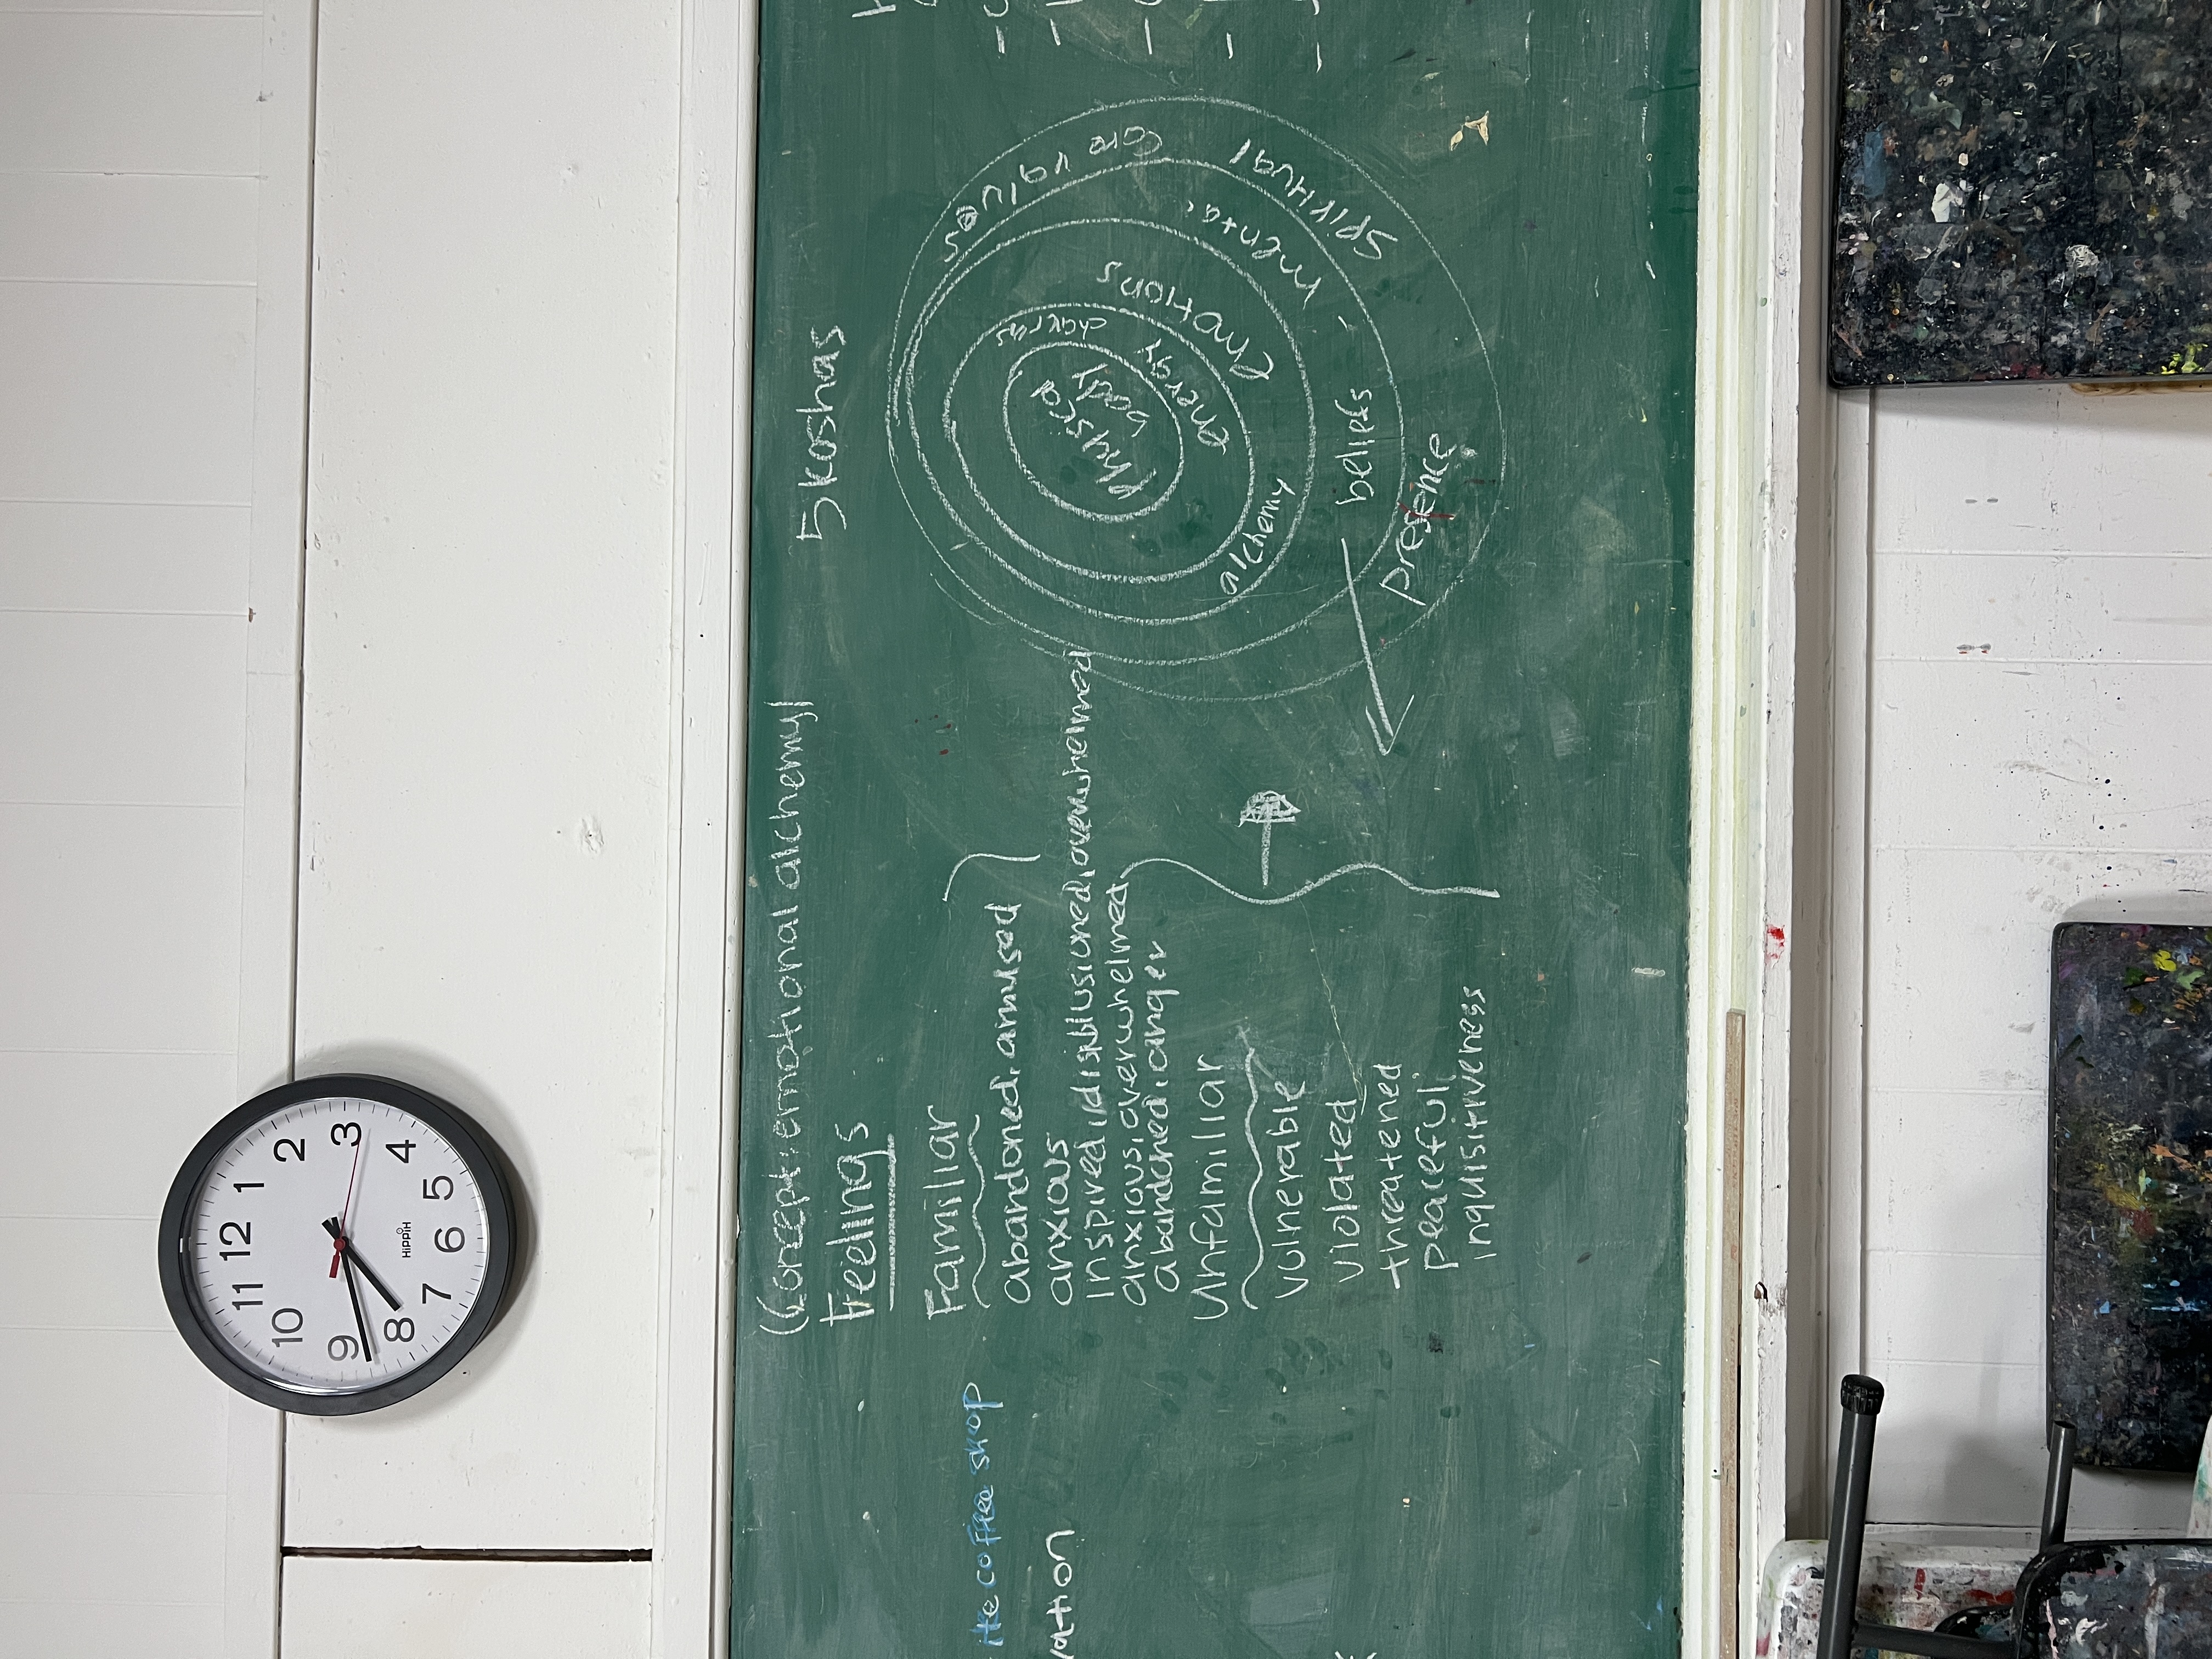 12
1
2
3
4
5
6
7
8
9
10
11
HIPPIH
(Concept: emotional alchemy)
Feelings
Familiar
abandoned, amused
anxious
anxious, overwhelmed
anger
Unfamiliar
vulnerable
violated
threatened
peaceful,
inquisitiveness
5 koshas
core values
chakras
Physical
body
energy
emotions
mental
spiritual
alchemy
beliefs
presence
coffee shop